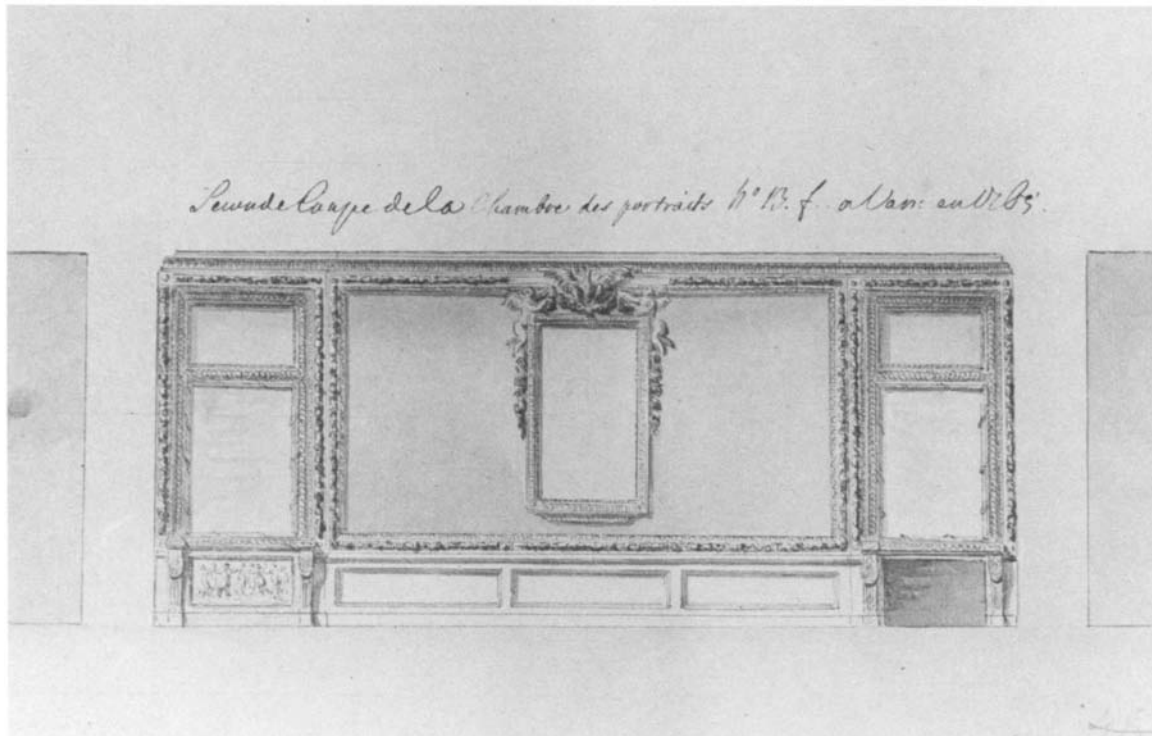 Seconde Coupe de la Chambre des portraits N° 13. f. a Vars: au